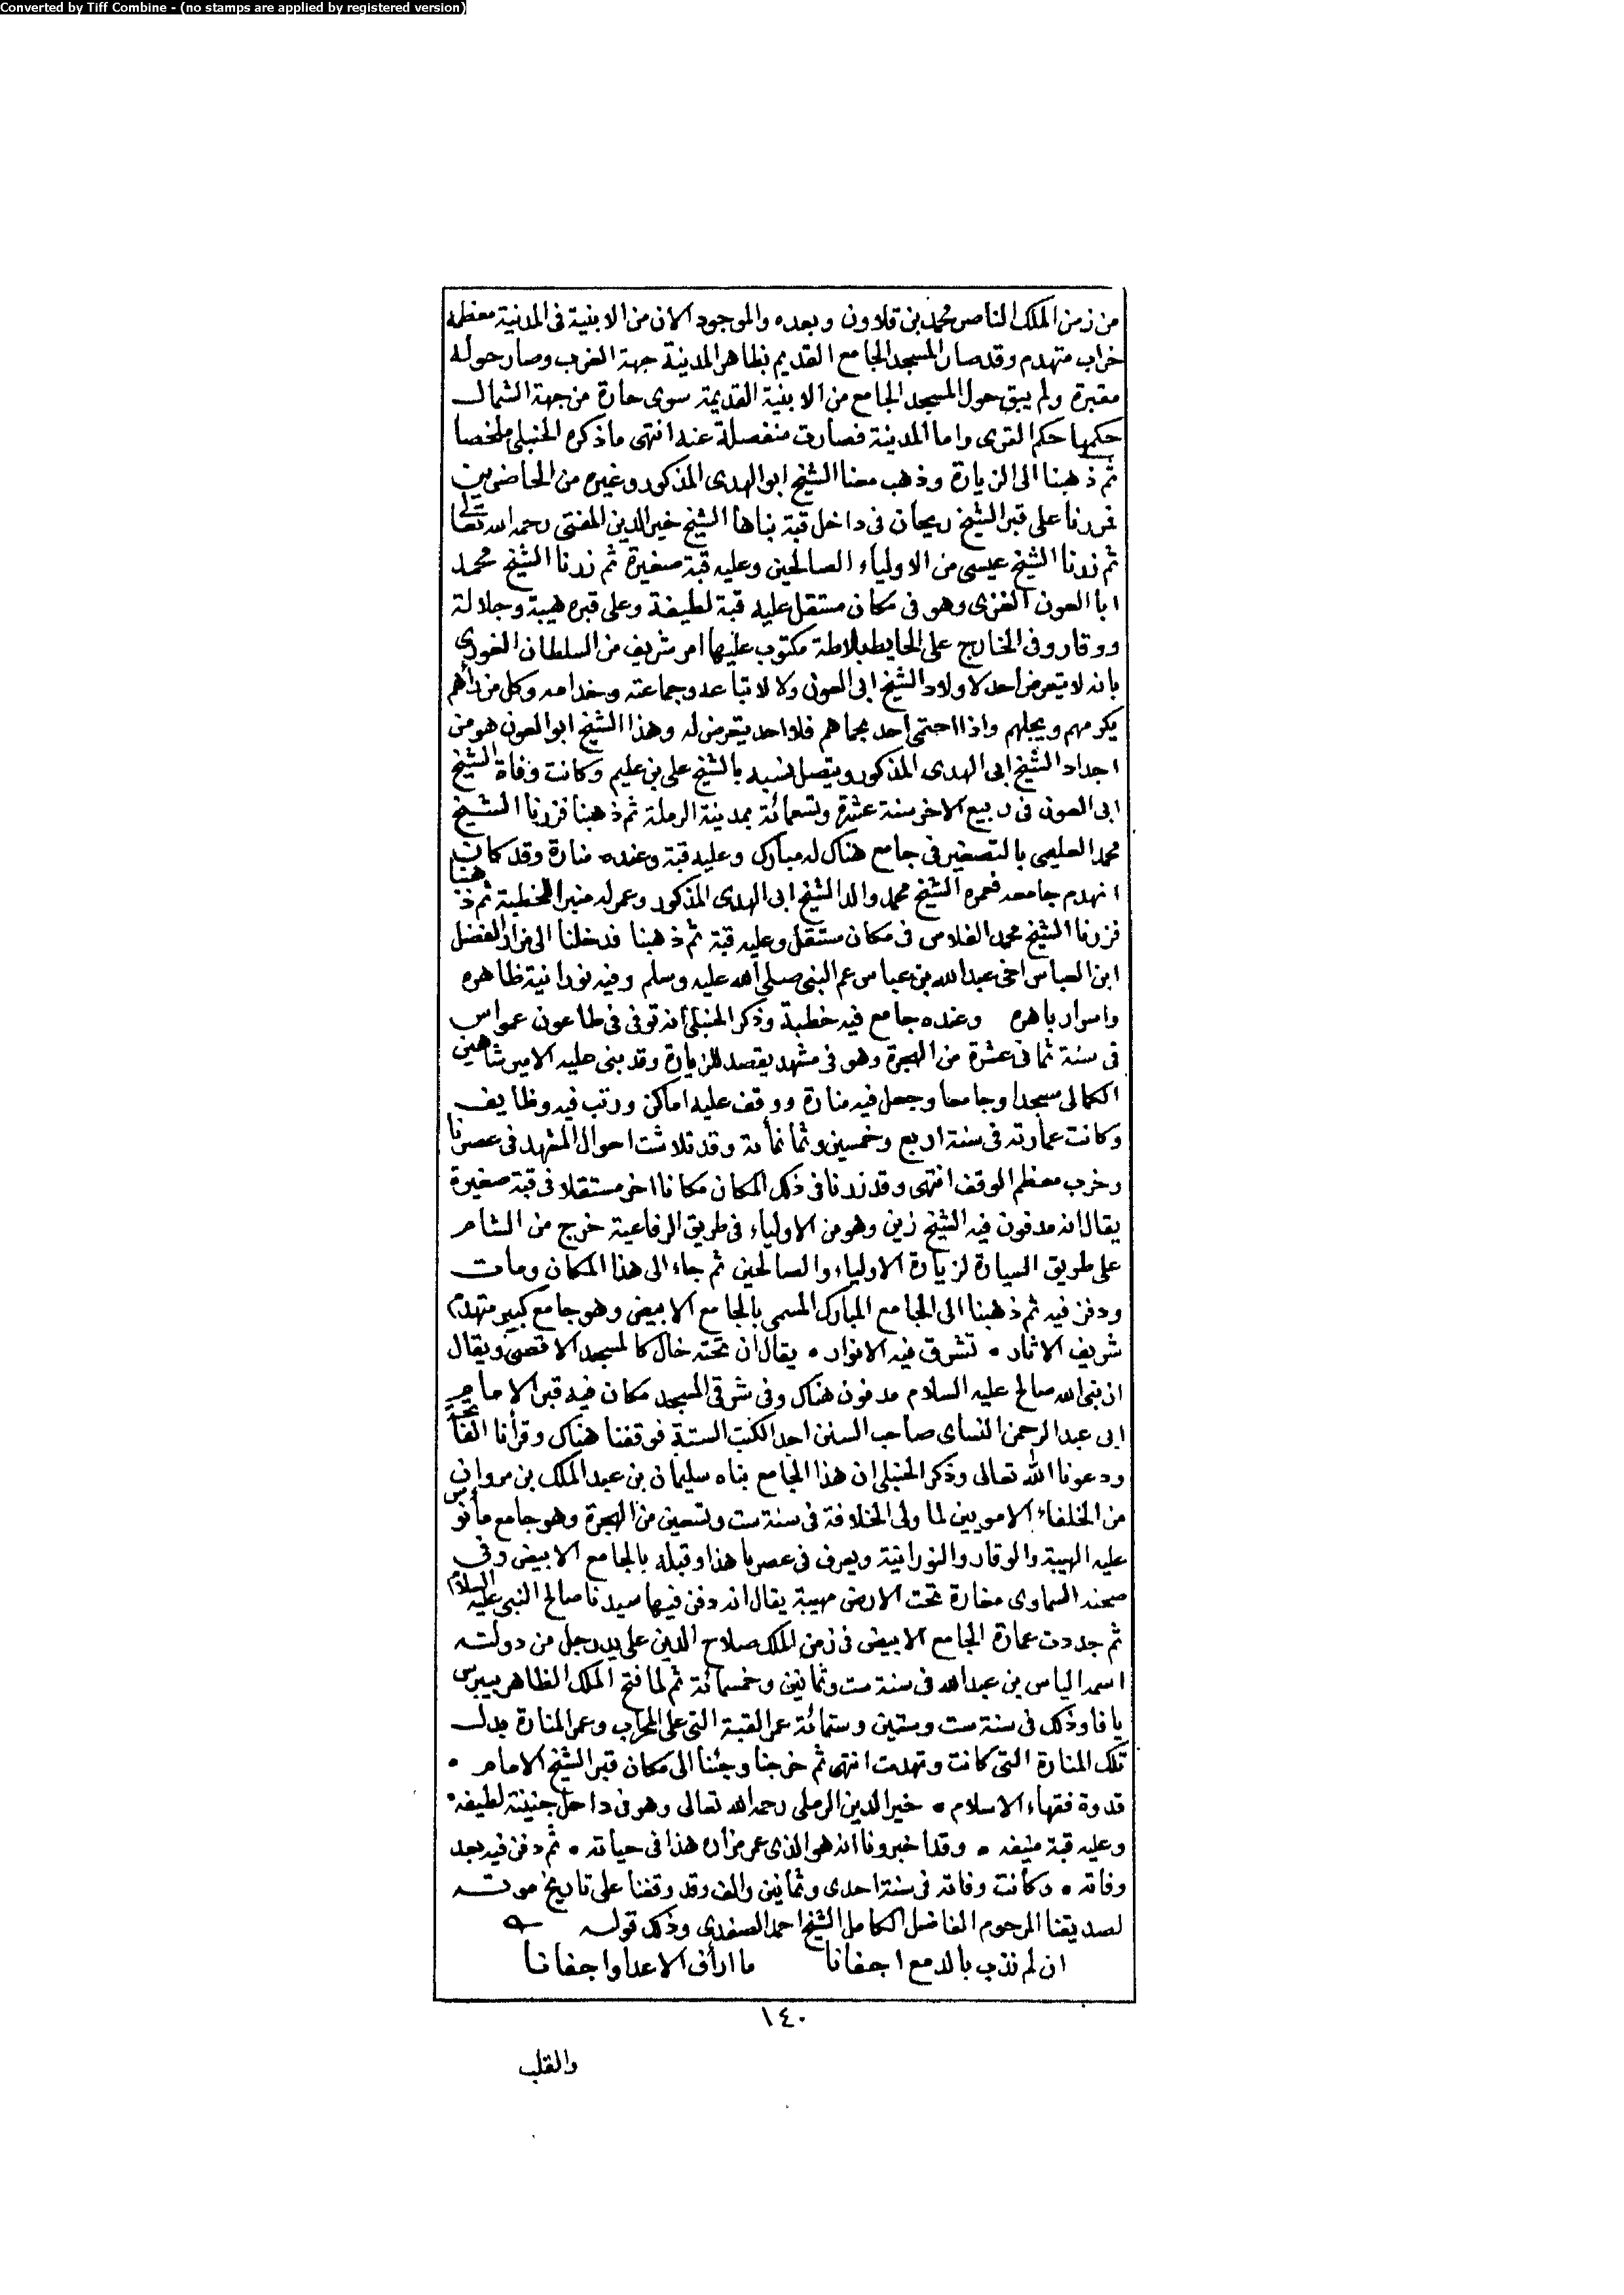 Converted by Tiff Combine - (no stamps are applied by registered version)
من زمن الملك الناصر محمد بن قلاون وبعده والموجود الان من الابنية فى المدنية معظمه
خراب متهدم وقد صار المسجد الجامع القديم بظاهر المدينة جهة الغرب وصار حوله
مقبرة ولم يبق حول المسجد الجامع من الابنية القديمة سوى حارة من جهة الشمال
حكمها حكم القرى واما المدينة فصارت منفصلة عنه انتهى ما ذكره الحنبلى ملخصا
ثم ذهبنا الى الزيارة وذهب معنا الشيخ ابو الهدى المذكور وغيره من الحاضرين
فمررنا على قبر الشيخ ريحان فى داخل قبة بناها الشيخ خير الدين المفتى رحمه الله تعالى
ثم زرنا الشيخ عيسى من الاولياء الصالحين وعليه قبة صغيرة ثم زرنا الشيخ محمد
ابا العون الغزى وهو فى مكان مستقل عليه قبة لطيفة وعلى قبره هيبة وجلالة
ووقار وفى الخارج على الحايط بلاطة مكتوب عليها امر شريف من السلطان الغورى
بانه لا يتعرض احد لاولاد الشيخ ابى العون ولا لاتباعه وجماعته وخدامه وكل من رأهم
يكرمهم ويجلهم واذا احتمى احد بحماهم فلا احد يتعرض له وهذا الشيخ ابو العون هو من
اجداد الشيخ ابى الهدى المذكور ويتصل نسبه بالشيخ على بن عليم وكانت وفاة الشيخ
ابى العون فى ربيع الاخر سنة عشرة وتسعمائة بمدينة الرملة ثم ذهبنا فزرنا الشيخ
محمد العليمى بالتصغير فى جامع هناك له مبارك وعليه قبة وعنده منارة وقد كان
انهدم جامعه فعمره الشيخ محمد والد الشيخ ابى الهدى المذكور وعمر له منبرا للخطبة ثم ذهبنا
فزرنا الشيخ محمد الغلاس فى مكان مستقل وعليه قبة ثم ذهبنا فدخلنا الى مزار الفضل
ابن العباس اخى عبدالله بن عباس عم النبى صلى الله عليه وسلم وفيه نورانية ظاهره
واسرار باهره وعنده جامع فيه خطبة وذكر الحنبلى انه توفى فى طاعون عمواس
فى سنة ثمانى عشرة من الهجرة وهو فى مشهد يقصد للزيارة وقد بنى عليه الامير شاهين
الكمالى مسجدا وجامعا وجعل فيه منارة ووقف عليه اماكن ورتب فيه وظايف
وكانت عمارته فى سنة اربع وخمسين وثمانمائة وقد تلاشت احوال المشهد فى عصرنا
وخرب معظم الوقف انتهى وقد زرنا فى ذلك المكان مكانا اخر مستقلا فى قبة صغيرة
يقال انه مدفون فيه الشيخ زين وهو من الاولياء فى طريق الرفاعية خرج من الشام
على طريق السيارة لزيارة الاولياء والصالحين ثم جاء الى هذا المكان ومات
ودفن فيه ثم ذهبنا الى الجامع المبارك المسمى بالجامع الابيض وهو جامع كبير متهدم
شريف الاثار • تشرق فيه الانوار • يقال ان تحته خال كالمسجد الاقصى ويقال
ان نبى الله صالح عليه السلام مدفون هناك وفى شرقى المسجد مكان فيه قبر الامام
ابى عبد الرحمن النساى صاحب السنن احد الكتب الستة فوقفنا هناك وقرأنا الفاتحة
ودعونا الله تعالى وذكر الحنبلى ان هذا الجامع بناه سليمان بن عبد الملك بن مروان
من الخلفاء الامويين لما ولى الخلافة فى سنة ست وتسعين من الهجرة وهو جامع مأنوس
عليه الهيبة والوقار والنورانية ويعرف فى عصرنا هذا وقبله بالجامع الابيض وفى
صحنه السماوى مغارة تحت الارض مهيبة يقال انه دفن فيها سيدنا صالح النبى عليه السلام
ثم جددت عمارة الجامع الابيض فى زمن الملك صلاح الدين على يد رجل من دولته
اسمه الياس بن عبدالله فى سنة ست وثمانين وخمسمائة ثم لما فتح الملك الظاهر بيبرس
يافا وذلك فى سنة ست وستين وستمائة عمر القبة التى على المحراب وعمر المنارة بدل
تلك المنارة التى كانت وتهدمت انتهى ثم خرجنا وجئنا الى مكان قبر الشيخ الامام •
قدوة فقهاء الاسلام • خير الدين الرملى رحمه الله تعالى وهو فى داخل جنينة لطيفه •
وعليه قبة منيفه • وقد اخبرونا انه هو الذى عمر مزاره هذا فى حياته • ثم دفن فيه بعد
وفاته • وكانت وفاته فى سنة احدى وثمانين والف وقد وقفنا على تاريخ موته
لصديقنا المرحوم الفاضل الكامل الشيخ احمد الصفدى وذلك قوله
ان لم نذب بالدمع اجفانا ما ارأف الاعدا واجفانا
١٤٠
والقلب